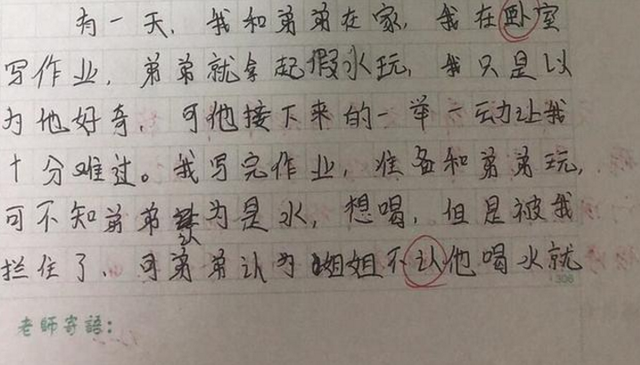 有一天，我和弟弟在家，我在卧室
写作业，弟弟就拿起假水玩，我只是以
为他好奇，可他接下来的一举一动让我
十分难过。我写完作业，准备和弟弟玩，
可不知弟弟认为是水，想喝，但是被我
拦住了，可弟弟认为姐姐不认他喝水就
306
老師寄語：